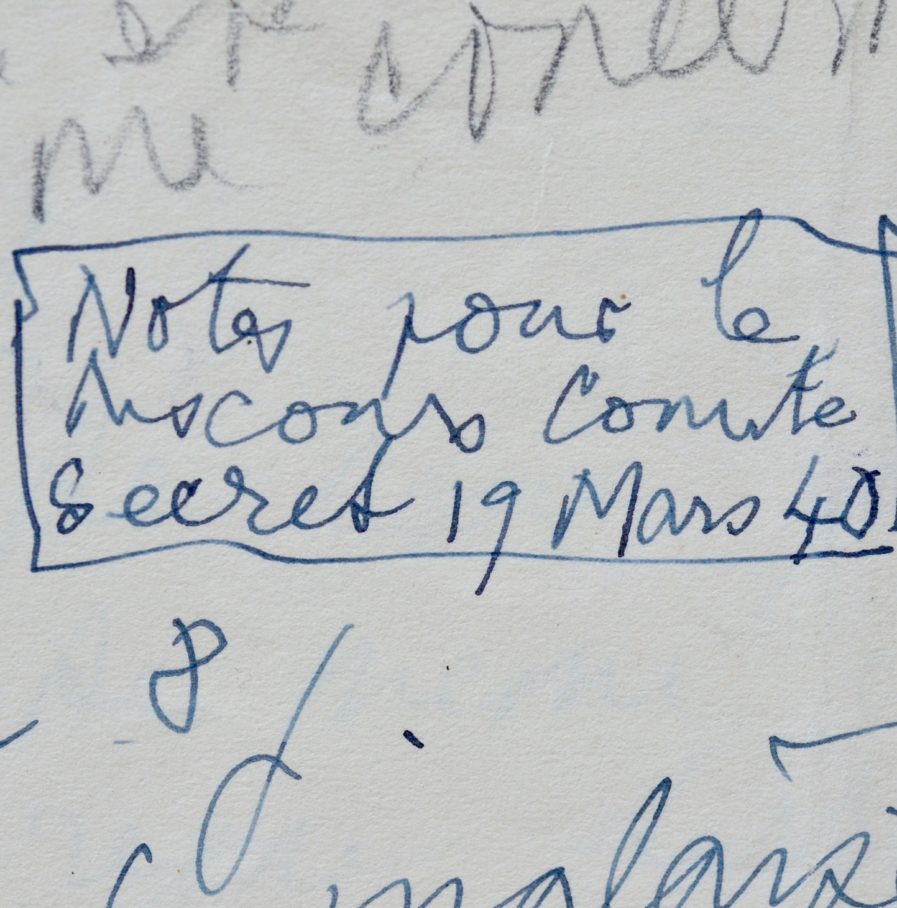 me
Notes pour le
discours Comité
Secret 19 Mars 40
8
malais